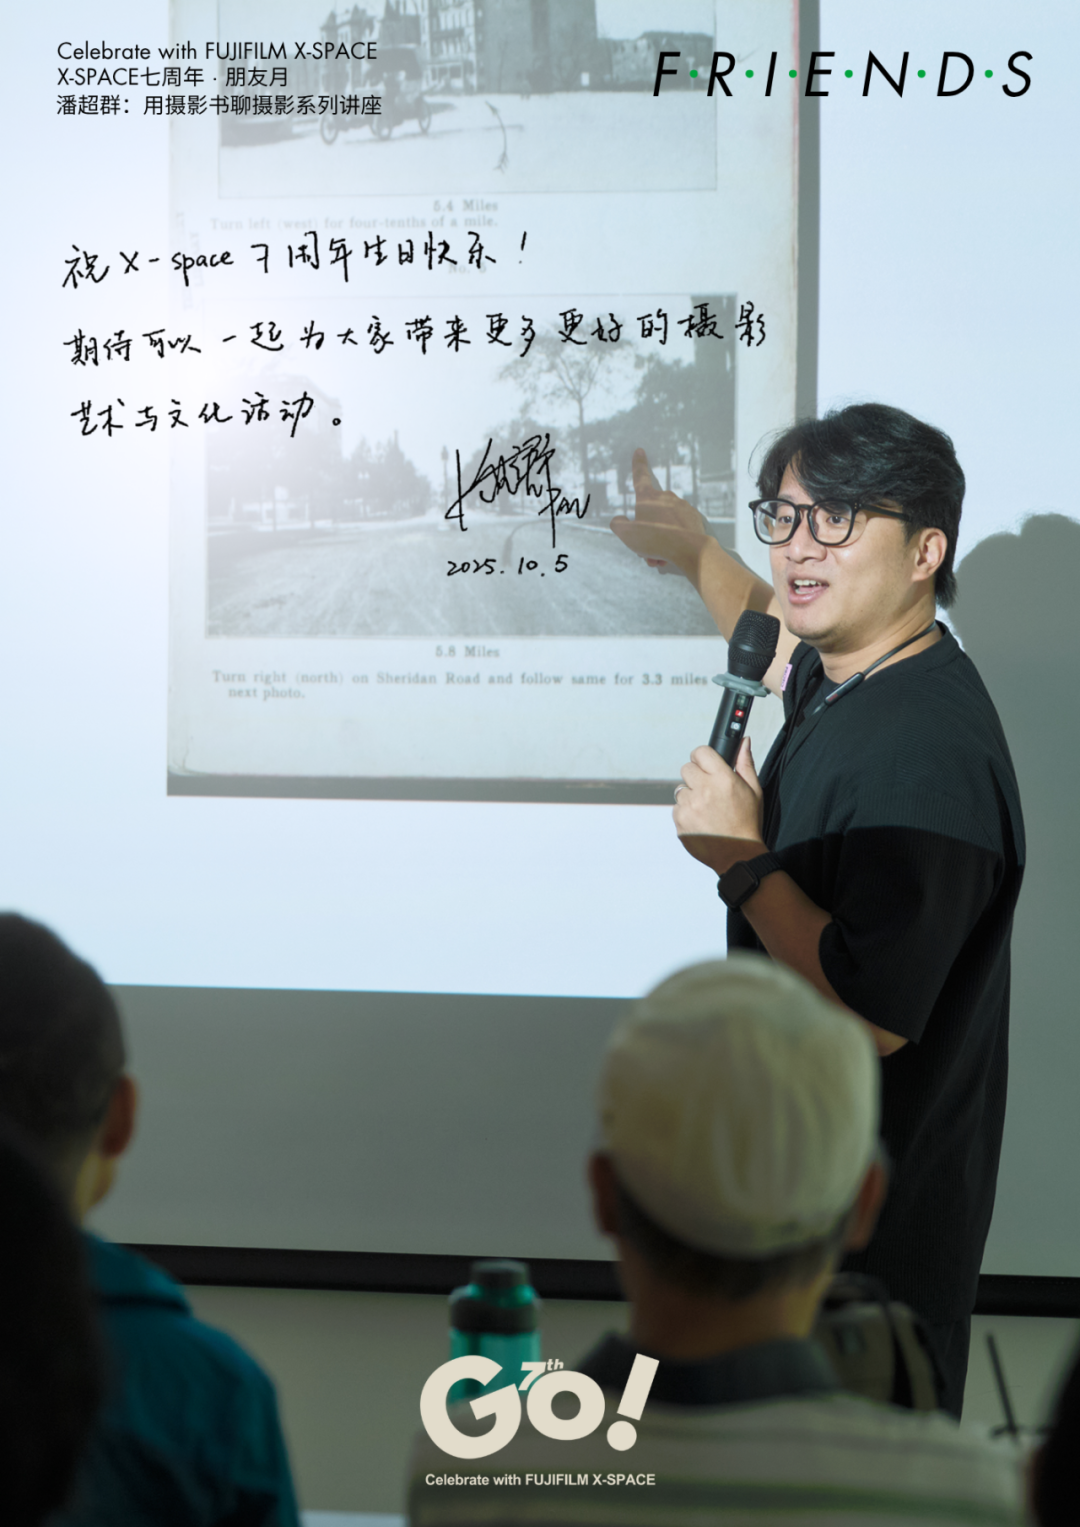 Celebrate with FUJIFILM X-SPACE
X-SPACE七周年 · 朋友月
潘超群：用摄影书聊摄影系列讲座
F·R·I·E·N·D·S
5.4 Miles
Turn left (west) for four-tenths of a mile.
祝X-space 7周年生日快乐！
No. 8
期待可以一起为大家带来更多更好的摄影
艺术与文化活动。
Pan
2025.10.5
5.8 Miles
Turn right (north) on Sheridan Road and follow same for 3.3 miles
next photo.
Go!
7th
Celebrate with FUJIFILM X-SPACE